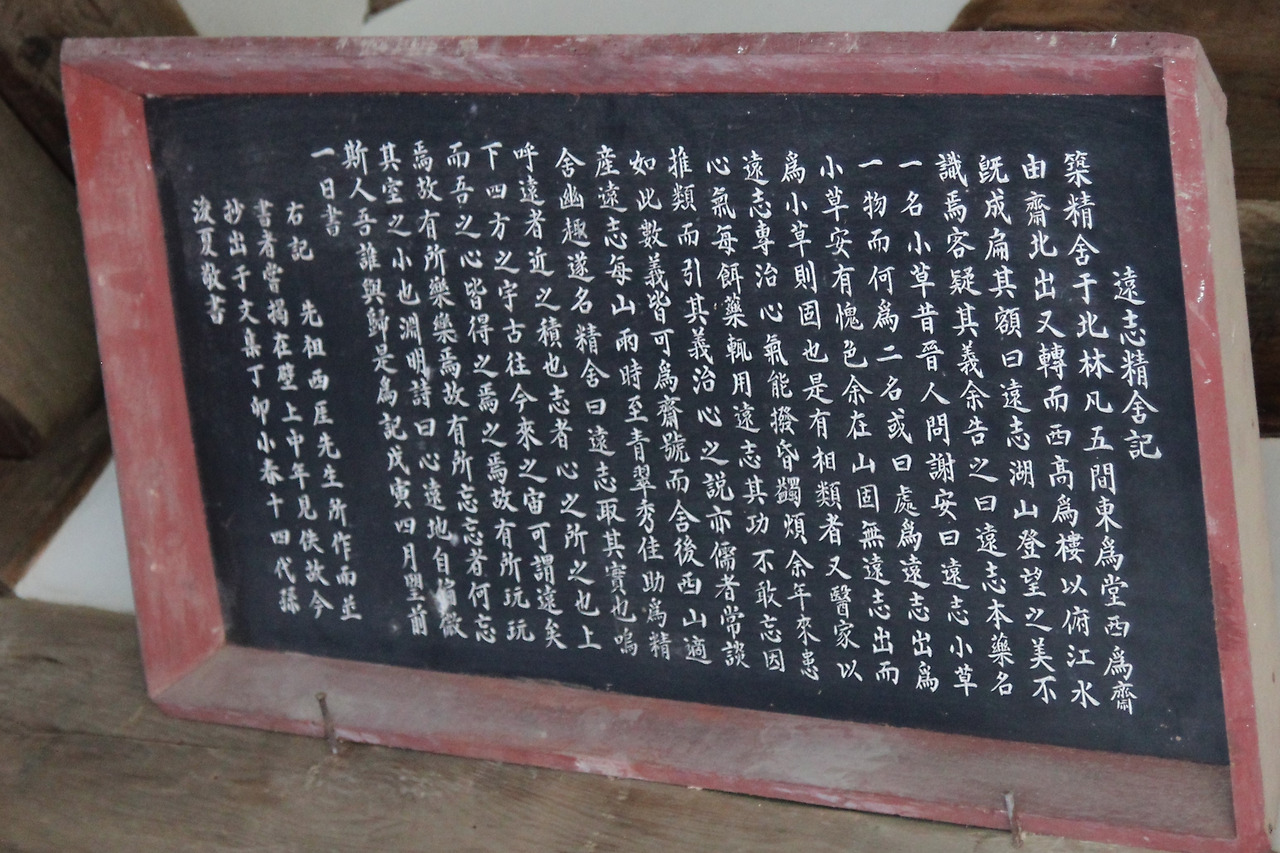 遠志精舍記
築精舍于北林凡五間東爲堂西爲齋
由齋北出又轉而西高爲樓以俯江水
旣成扁其額曰遠志湖山登望之美不
識焉客疑其義余告之曰遠志本藥名
一名小草昔晉人問謝安曰遠志小草
一物而何爲二名或曰處爲遠志出爲
小草安有愧色余在山固無遠志出而
爲小草則固也是有相類者又醫家以
遠志專治心氣能撥昏蠲煩余年來患
心氣每餌藥輒用遠志其功不敢忘因
推類而引其義治心之說亦儒者常談
如此數義皆可爲齋號而舍後西山適
産遠志每山雨時至青翠秀佳助爲精
舍幽趣遂名精舍曰遠志取其實也嗚
呼遠者近之積也志者心之所之也上
下四方之宇古往今來之宙可謂遠矣
而吾之心皆得之焉之焉故有所玩玩
焉故有所樂樂焉故有所忘忘者何忘
其室之小也淵明詩曰心遠地自偏微
斯人吾誰與歸是爲記戊寅四月望前
一日書
右記 先祖西厓先生所作而並
書者嘗揭在壁上中年見佚故今
抄出于文集丁卯小春十四代孫
浚夏敬書